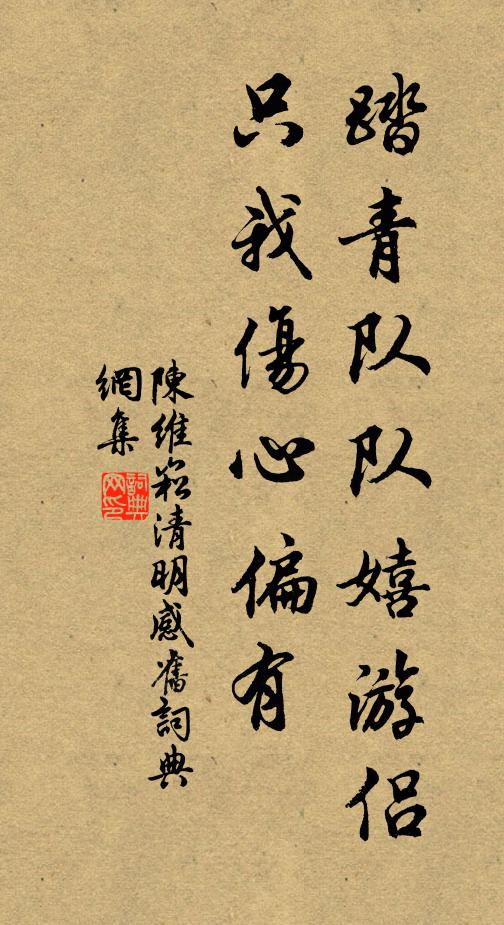 踏青队队嬉游侣
只我傷心偏有
陳維崧清明感舊詞典
網集
詞典
网印